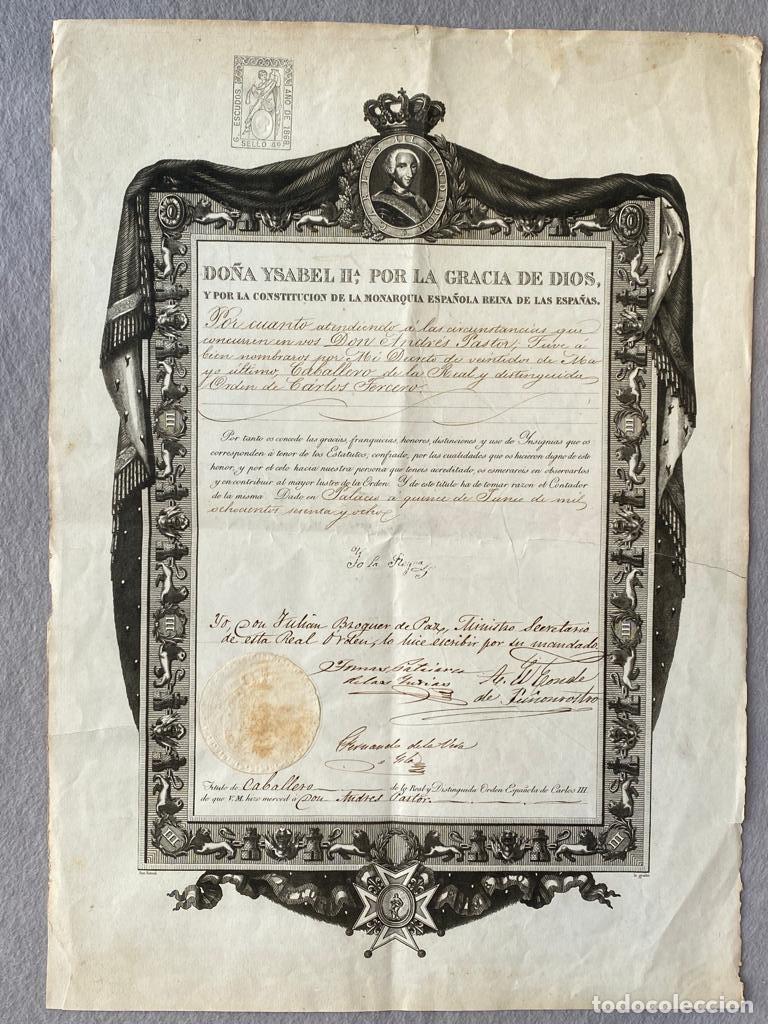 6. ESCUDOS
AÑO DE 1868.
SELLO 4º
CARLOS III FUNDADOR
DOÑA YSABEL II.ª POR LA GRACIA DE DIOS,
Y POR LA CONSTITUCION DE LA MONARQUIA ESPAÑOLA REINA DE LAS ESPAÑAS.
Por cuanto atendiendo á las circunstancias que
concurren en vos Don Andrés Pastor, Tuve á
bien nombraros por Mi Decreto de veintidos de Ma
yo último, Caballero de la Real y distinguida
Orden de Carlos Tercero.
Por tanto os concedo las gracias, franquicias, honores, distinciones y uso de Insignias que os
corresponden á tenor de los Estatutos; confiado, por las cualidades que os hicieron digno de este
honor, y por el celo hacia nuestra persona que teneis acreditado, os esmerareis en observarlos
y en contribuir al mayor lustre de la Orden. Y de este título ha de tomar razon el Contador
de la misma. Dado en Palacio a quince de Junio de mil
ochocientos sesenta y ocho
Yo la Reyna
Yo, Don Julian Broguer de Paz, Ministro Secretario
de esta Real Orden, lo hice escribir por su mandado.
Tomas Patriarca
de las Indias
A. El Conde
de Puñonrostro
Fernando de la Vera
é Isla
Título de Caballero de la Real y Distinguida Orden Española de Carlos III.
de que V. M. hizo merced á Don Andres Pastor.
III
III
III
III
III
III
lo grabó
todocoleccion